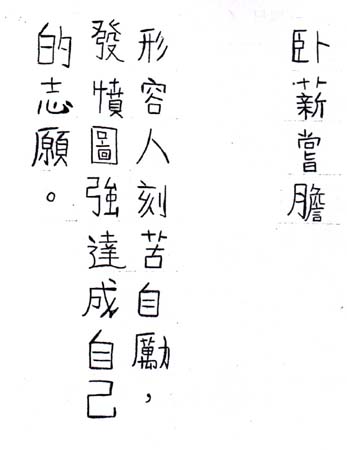 卧薪嘗膽
形容人刻苦自勵，
發憤圖強達成自己
的志願。